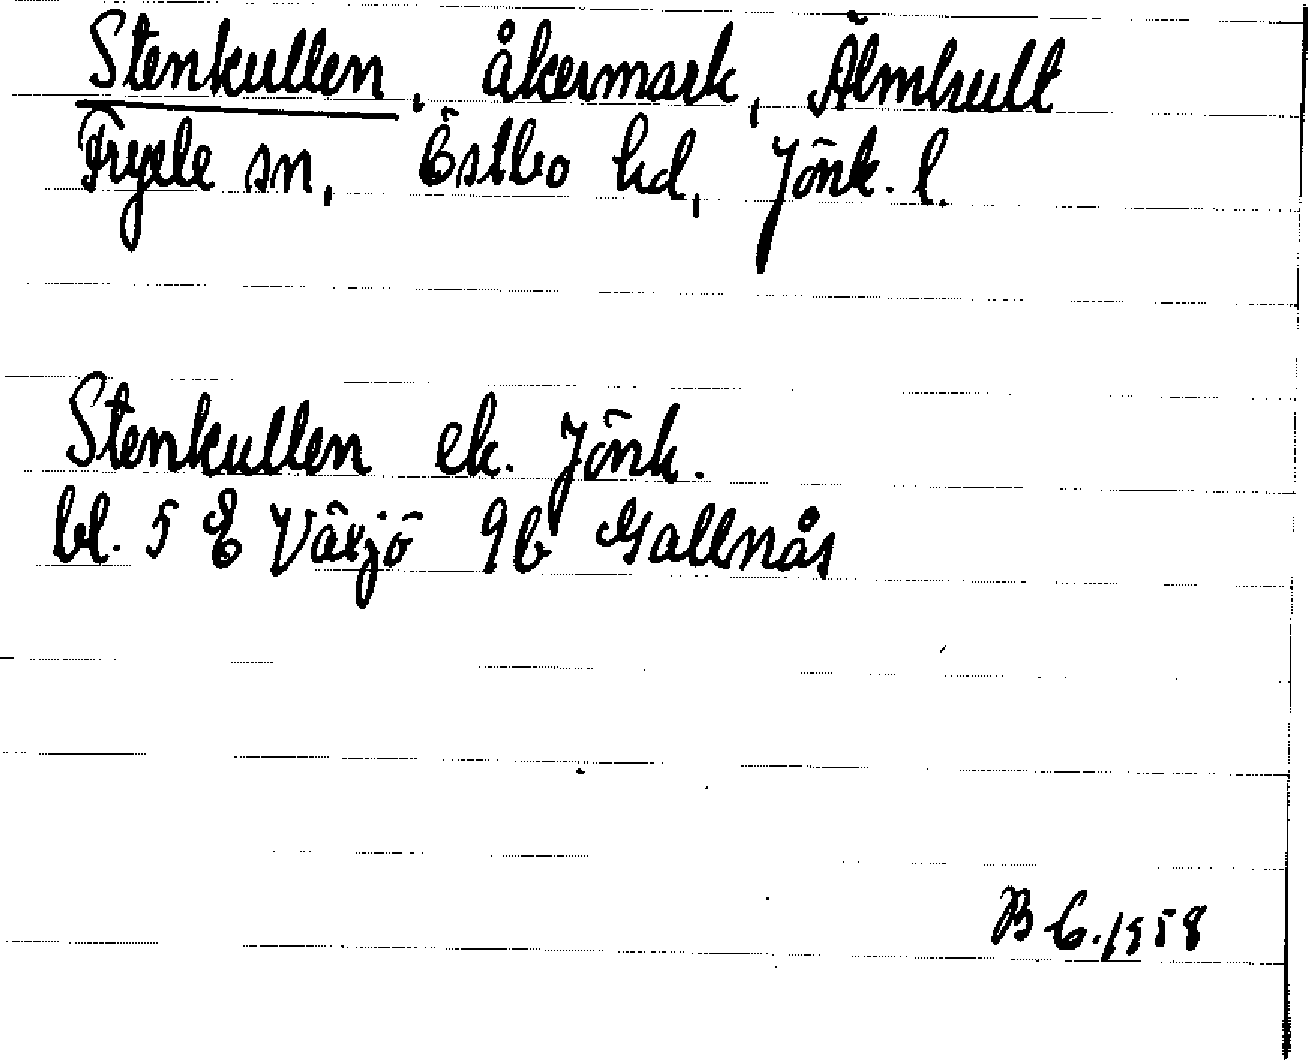 Stenkullen, åkermark, Älmhult
Fryele sn, Östbo hd, Jönk. l.
Stenkullen ek. Jönk.
bl. 5 E Växjö 9b Gallnås
B 6.1958